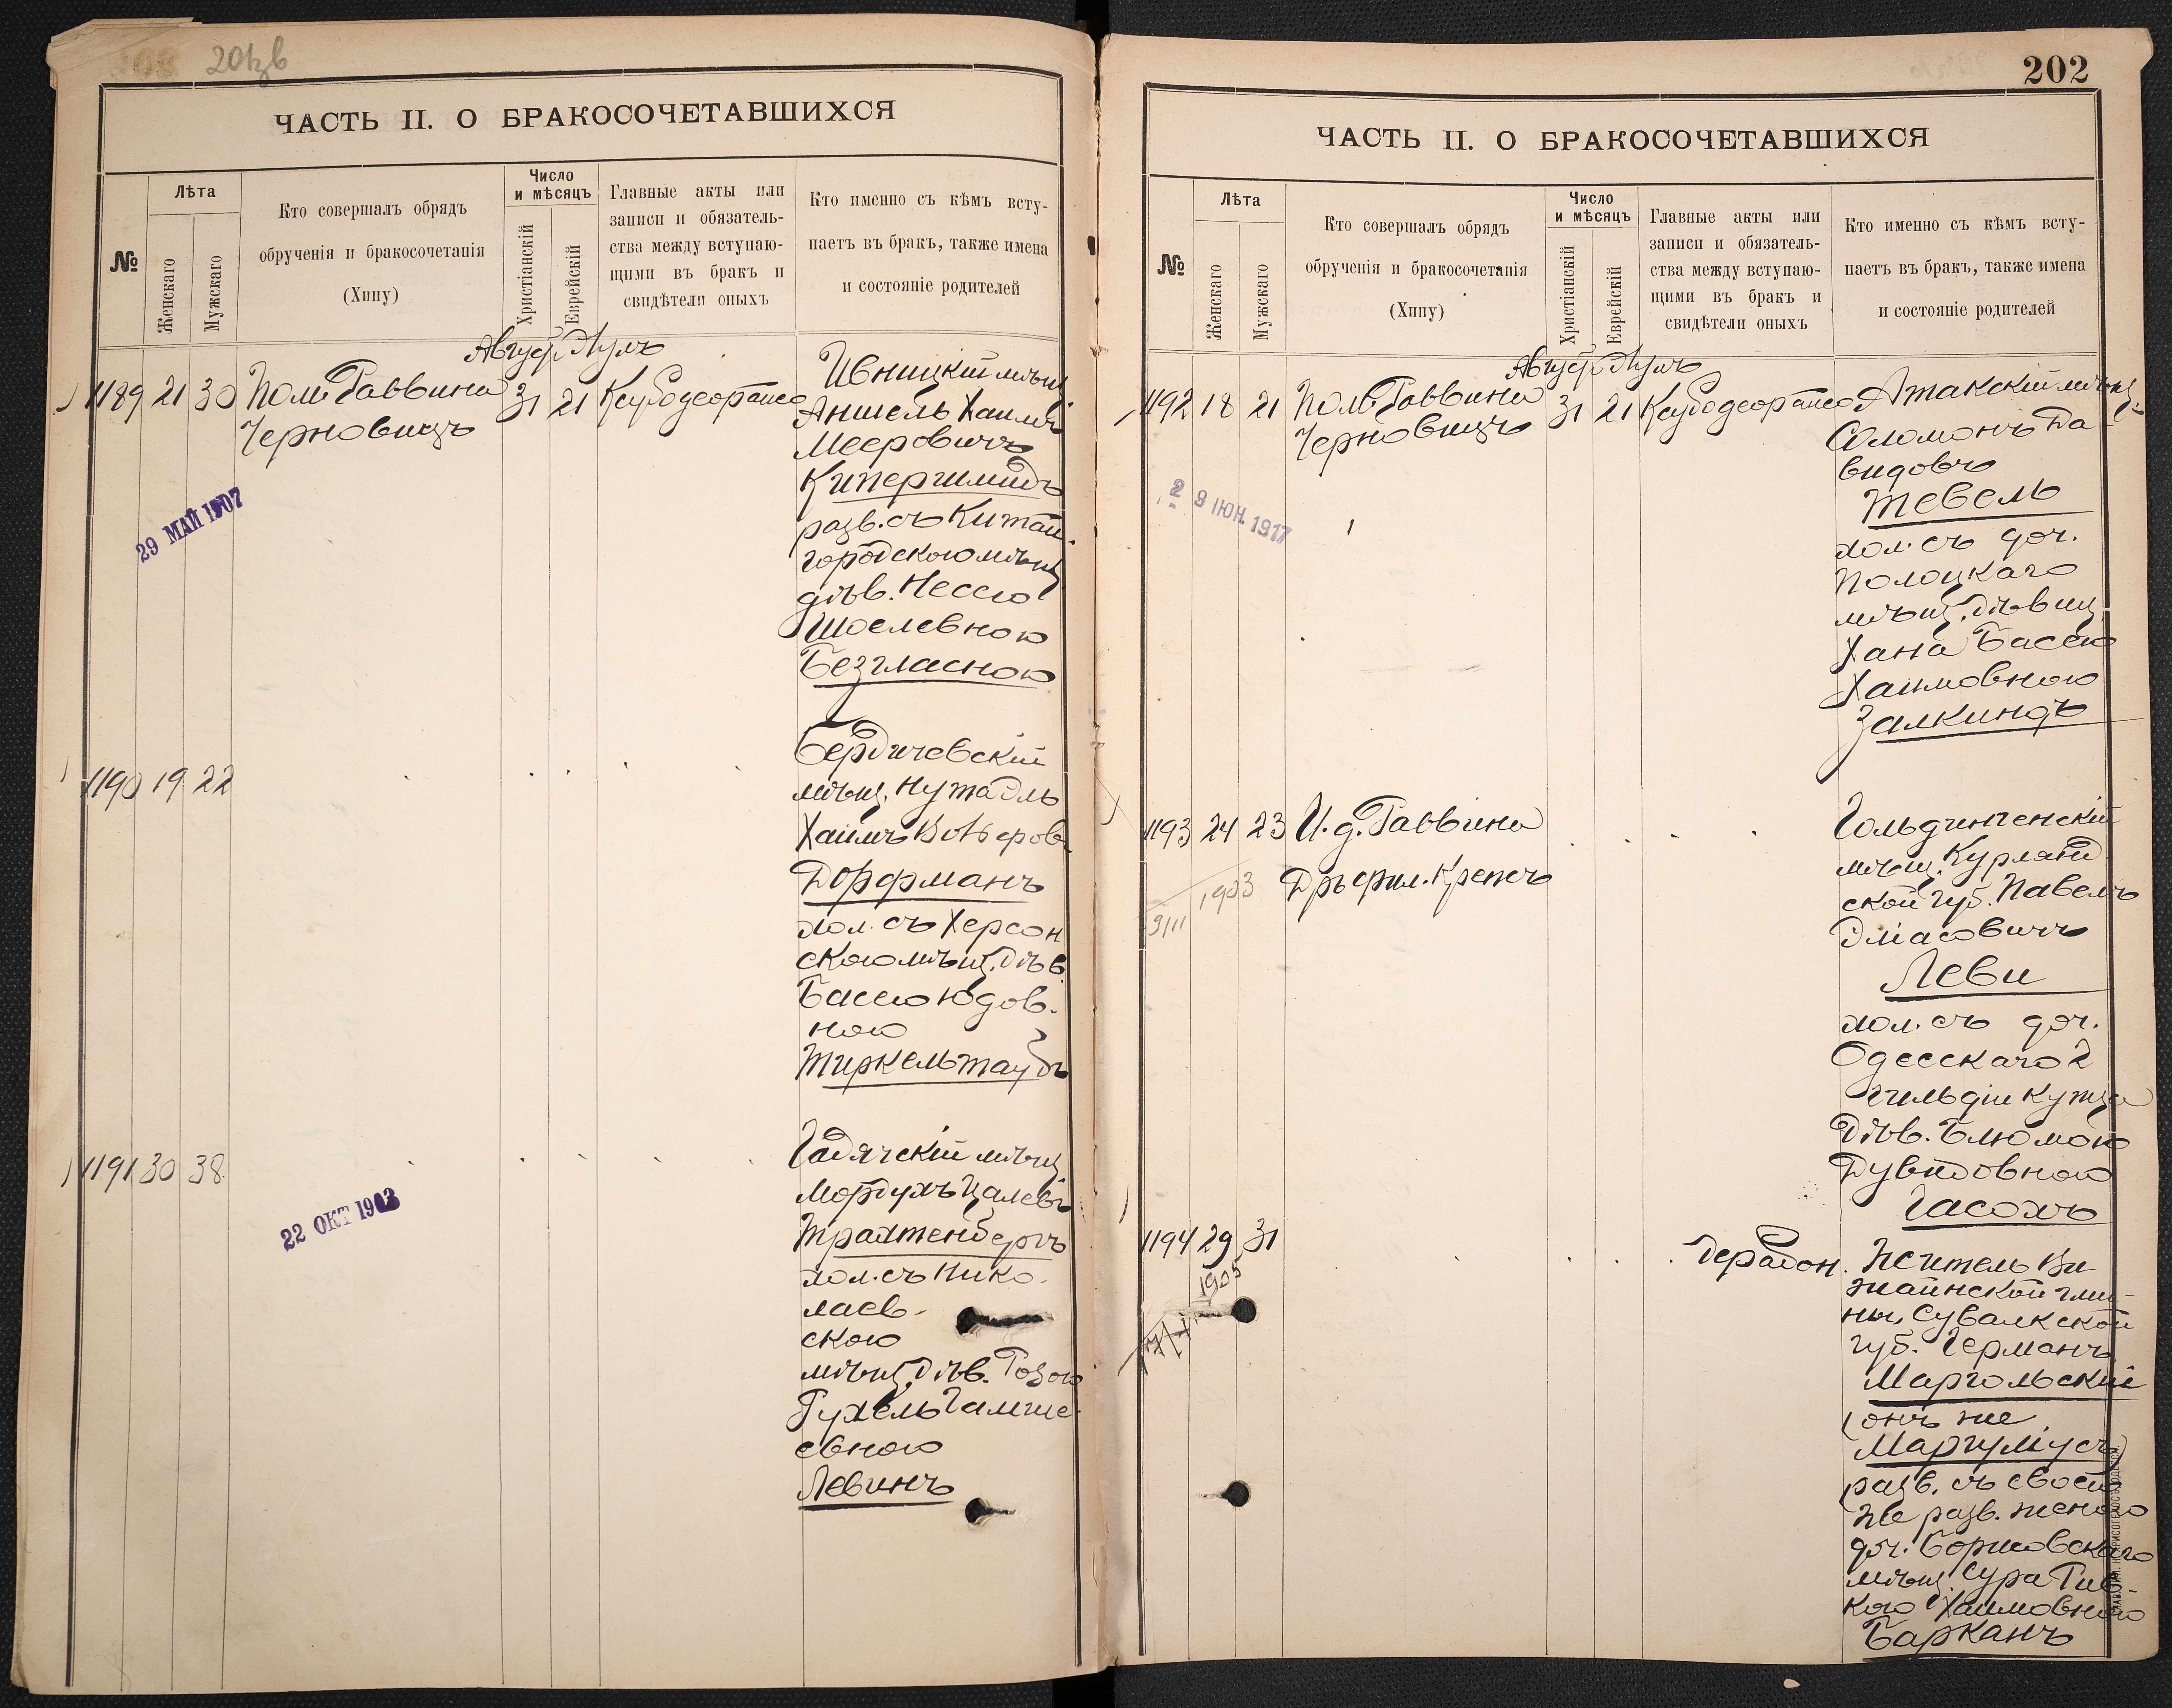 201зв
ЧАСТЬ II. О БРАКОСОЧЕТАВШИХСЯ
№
Лѣта
Женскаго
Мужскаго
Кто совершалъ обрядъ
обрученія и бракосочетанія
(Хипу)
Число
и мѣсяцъ
Христіанскій
Еврейскій
Главные акты или
записи и обязатель-
ства между вступаю-
щими въ бракъ и
свидѣтели оныхъ
Кто именно съ кѣмъ всту-
паетъ въ бракъ, также имена
и состояніе родителей
Август. Элулъ
1189 21 30 Пом. Раввина
Черновицъ
31 21
Ивницкій мѣщ.
Аншель Хаимъ
Мееровичъ
Кипершмидъ
разв. съ Китай
городскою мѣщ.
дѣв. Нессею
Шоелевною
Безгласною
29 МАЙ 1907
1190 19 22
Бердичевскій
мѣщ.
Хаимъ
Дорфманъ
хол. съ Херсон
скою мѣщ. дѣв.
Басею Юдов-
ною
Тиркельтаубъ
1191 30 38
Гадячскій мѣщ.
Мордухъ
Трахтенбергъ
хол. съ Нико-
лаев-
скою
мѣщ. дѣв. Розою
Рухель
евною
Левинъ
22 ОКТ 1903
202
ЧАСТЬ II. О БРАКОСОЧЕТАВШИХСЯ
№
Лѣта
Женскаго
Мужскаго
Кто совершалъ обрядъ
обрученія и бракосочетанія
(Хипу)
Число
и мѣсяцъ
Христіанскій
Еврейскій
Главные акты или
записи и обязатель-
ства между вступаю-
щими въ бракъ и
свидѣтели оныхъ
Кто именно съ кѣмъ всту-
паетъ въ бракъ, также имена
и состояніе родителей
Август. Элулъ
1192 18 21 Пом. Раввина
Черновицъ
31 21
Атакскій мѣщ.
Соломонъ Да
видовъ
Тевель
хол. съ доч.
Полоцкаго
мѣщ. дѣвиц.
Хана Басею
Хаимовною
Залкиндъ
29 ІЮН. 1917
1193 24 23 И. д. Раввина
Дръ фил. Крепсъ
1903
Гольдингенскій
мѣщ. Курлянд
ской губ. Павелъ
Эліасовичъ
Леви
хол. съ доч.
Одесскаго 2
гильдіи купца
дѣв. Блюмою
Дувидовною
Гасохъ
1194 29 31
1905
Житель Ви
жайнской гми-
ны, Сувалкской
губ. Германъ
Маргольскій
(онъ же
Маргуліусъ)
разв. съ своею
же разв. женою
доч. Борисовскаго
мѣщ. Сура Рив-
кою Хаимовною
Барканъ